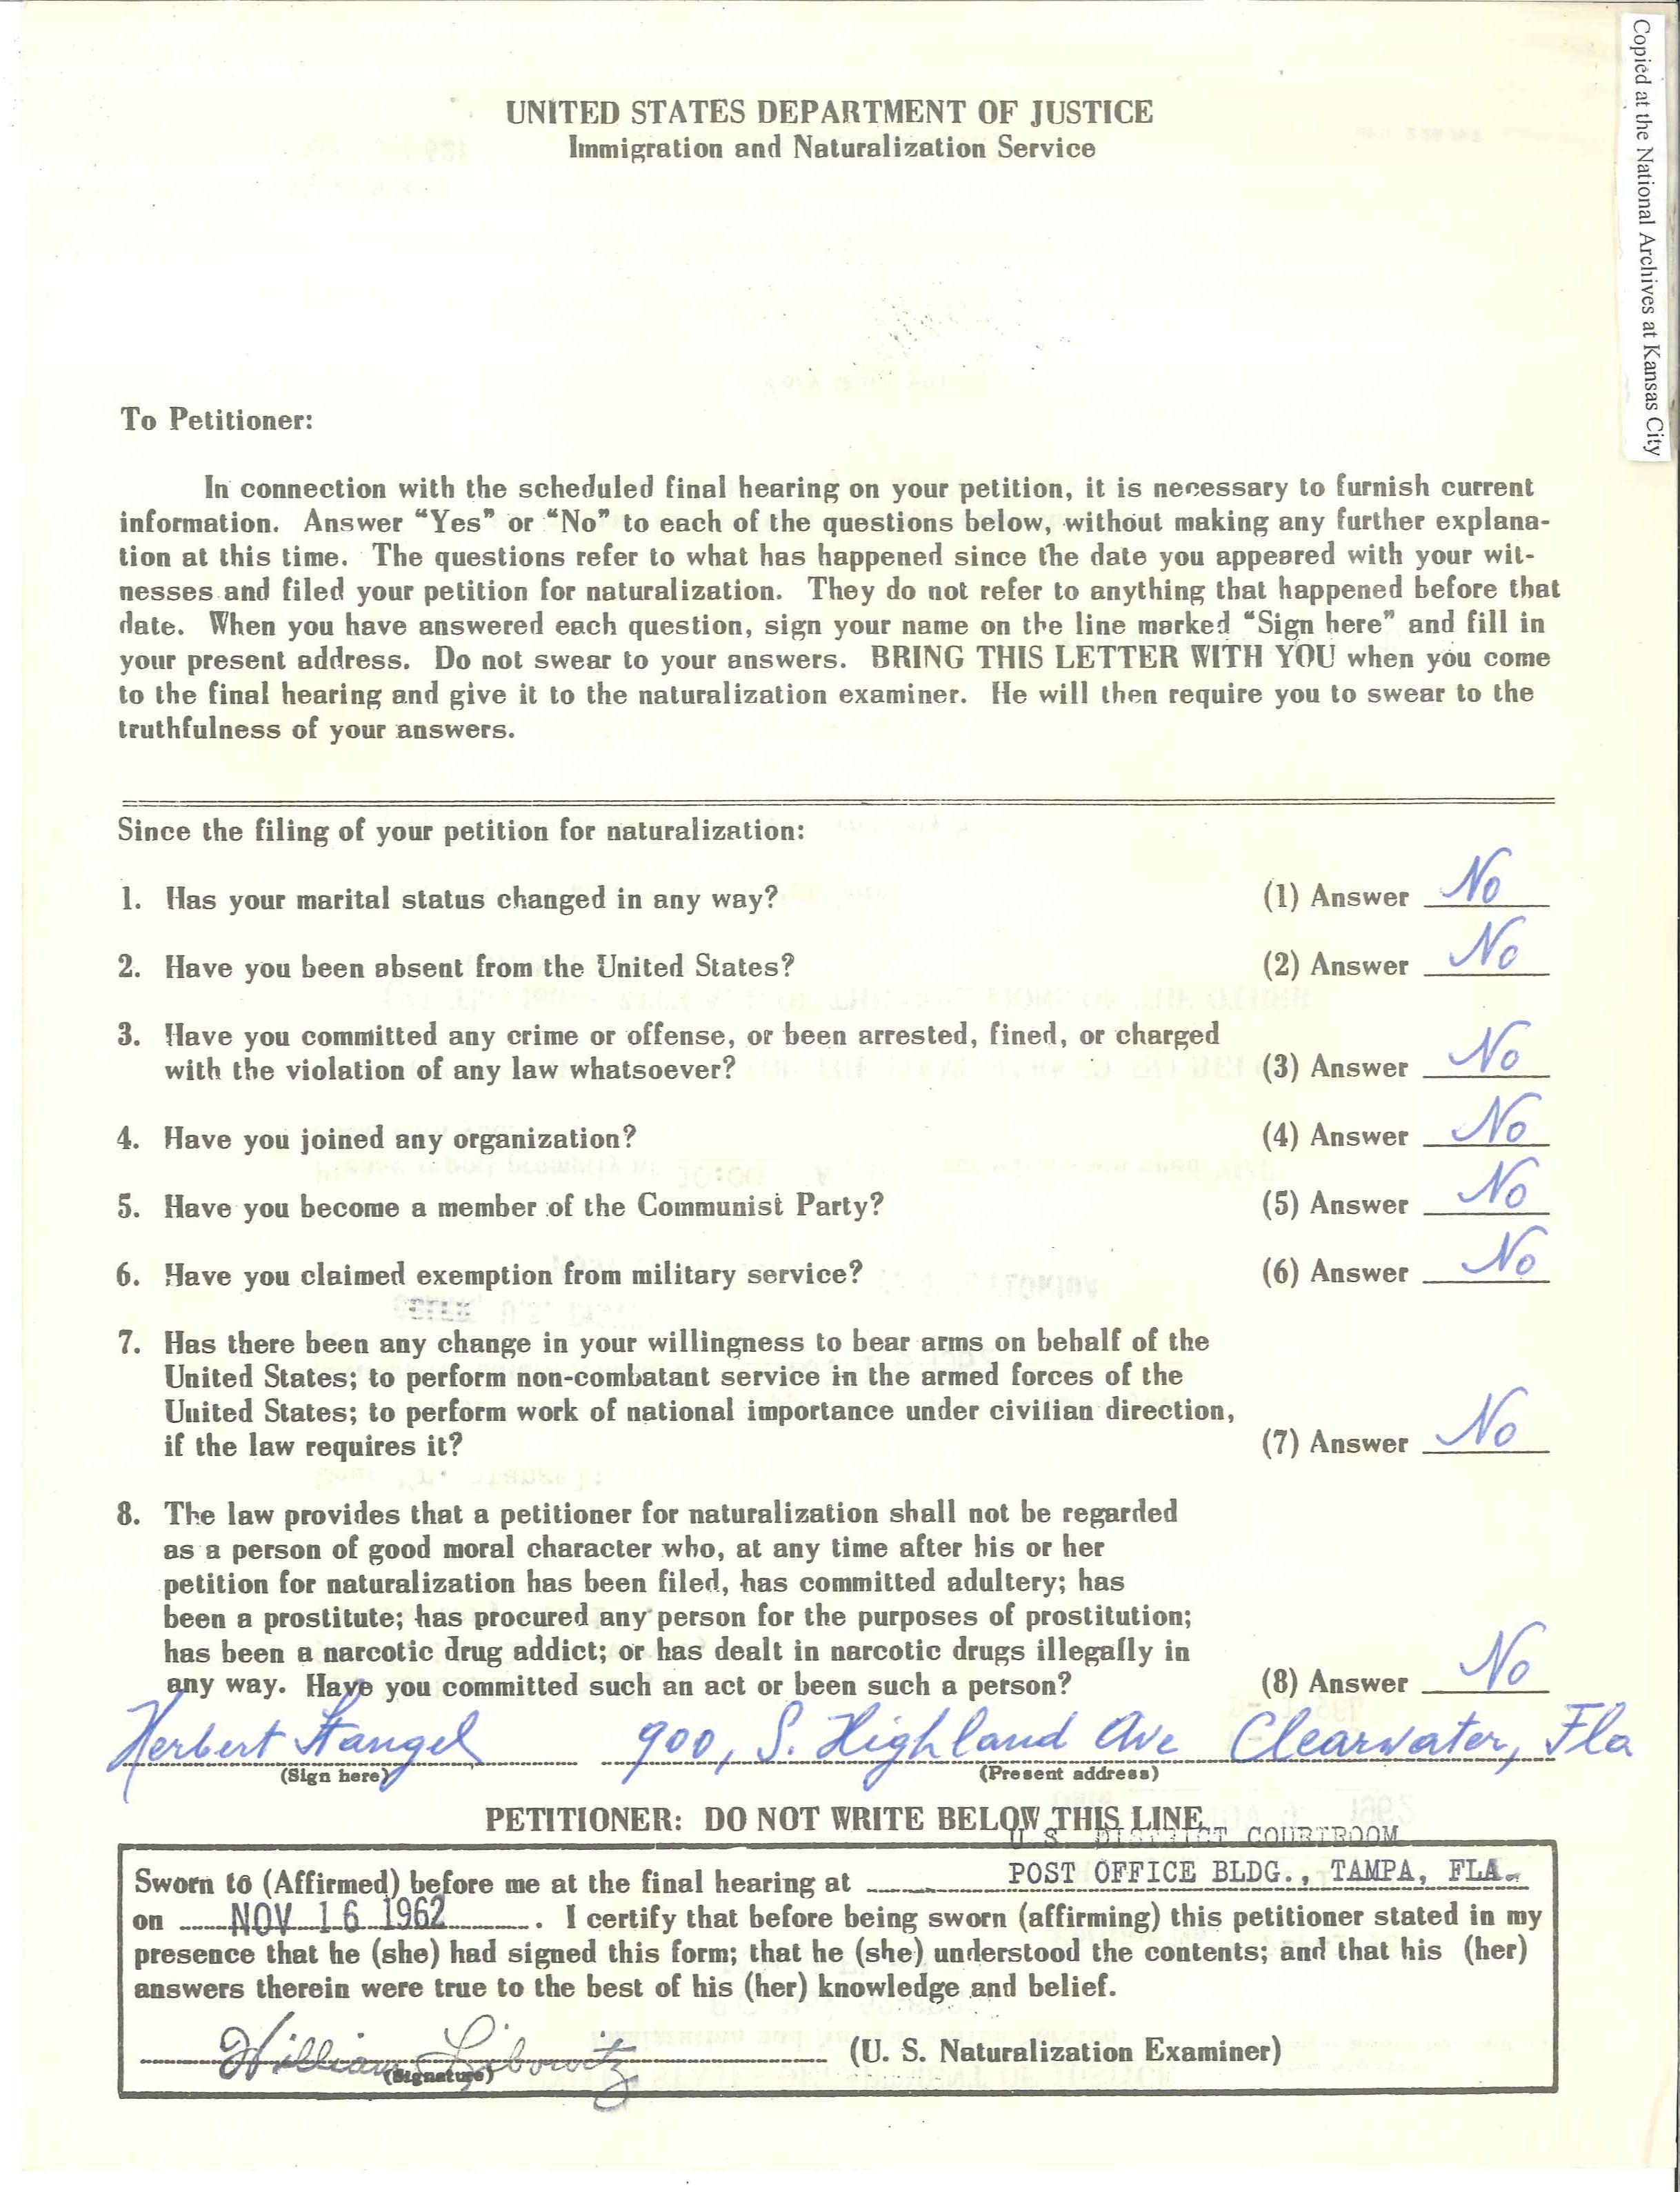 Copied at the National Archives at Kansas City
UNITED STATES DEPARTMENT OF JUSTICE
Immigration and Naturalization Service
To Petitioner:
In connection with the scheduled final hearing on your petition, it is necessary to furnish current
information. Answer “Yes” or “No” to each of the questions below, without making any further explana-
tion at this time. The questions refer to what has happened since the date you appeared with your wit-
nesses and filed your petition for naturalization. They do not refer to anything that happened before that
date. When you have answered each question, sign your name on the line marked “Sign here” and fill in
your present address. Do not swear to your answers. BRING THIS LETTER WITH YOU when you come
to the final hearing and give it to the naturalization examiner. He will then require you to swear to the
truthfulness of your answers.
Since the filing of your petition for naturalization:
1. Has your marital status changed in any way? (1) Answer No
2. Have you been absent from the United States? (2) Answer No
3. Have you committed any crime or offense, or been arrested, fined, or charged
with the violation of any law whatsoever? (3) Answer No
4. Have you joined any organization? (4) Answer No
5. Have you become a member of the Communist Party? (5) Answer No
6. Have you claimed exemption from military service? (6) Answer No
7. Has there been any change in your willingness to bear arms on behalf of the
United States; to perform non-combatant service in the armed forces of the
United States; to perform work of national importance under civilian direction,
if the law requires it? (7) Answer No
8. The law provides that a petitioner for naturalization shall not be regarded
as a person of good moral character who, at any time after his or her
petition for naturalization has been filed, has committed adultery; has
been a prostitute; has procured any person for the purposes of prostitution;
has been a narcotic drug addict; or has dealt in narcotic drugs illegally in
any way. Have you committed such an act or been such a person? (8) Answer No
Herbert Stangel 900, S. Highland Ave Clearwater, Fla
(Sign here) (Present address)
PETITIONER: DO NOT WRITE BELOW THIS LINE
U.S. DISTRICT COURTROOM
Sworn to (Affirmed) before me at the final hearing at POST OFFICE BLDG., TAMPA, FLA.
on NOV 16 1962. I certify that before being sworn (affirming) this petitioner stated in my
presence that he (she) had signed this form; that he (she) understood the contents; and that his (her)
answers therein were true to the best of his (her) knowledge and belief.
William Libowitz (U. S. Naturalization Examiner)
(Signature)